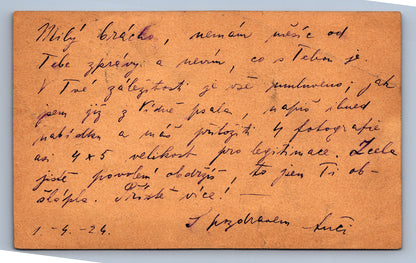 Milý bráško, nemám měsíc od
Tebe zprávy a nevím, co s Tebou je.
V Tvé záležitosti je vše umluveno; jak
jsem již z Vídně psala, napiš ihned
nabídku a máš přiložiti 4 fotografie
asi 4x5 velikost pro legitimace. Zcela
jistě povolení obdržíš, to jsem Ti ob-
Příště více! —
S pozdravem
1.-4.-24.